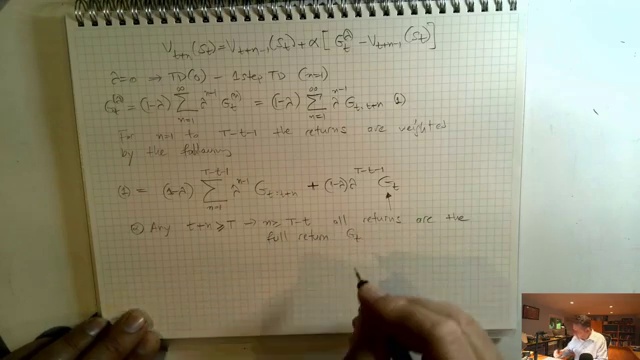 V_{t+n}(S_t) = V_{t+n-1}(S_t) + α [ G_t^{(λ)} - V_{t+n-1}(S_t) ]
λ=0 ⇒ TD(0) - 1 step TD (n=1)
G_t^{(λ)} = (1-λ) ∑_{n=1}^{∞} λ^{n-1} G_t^{(n)} = (1-λ) ∑_{n=1}^{∞} λ^{n-1} G_{t:t+n} (1)
For n=1 to T-t-1 the returns are weighted
by the following
(1) = (1-λ) ∑_{n=1}^{T-t-1} λ^{n-1} G_{t:t+n} + (1-λ) λ^{T-t-1} G_t
Any t+n ⩾ T → n ⩾ T-t all returns are the
full return G_t